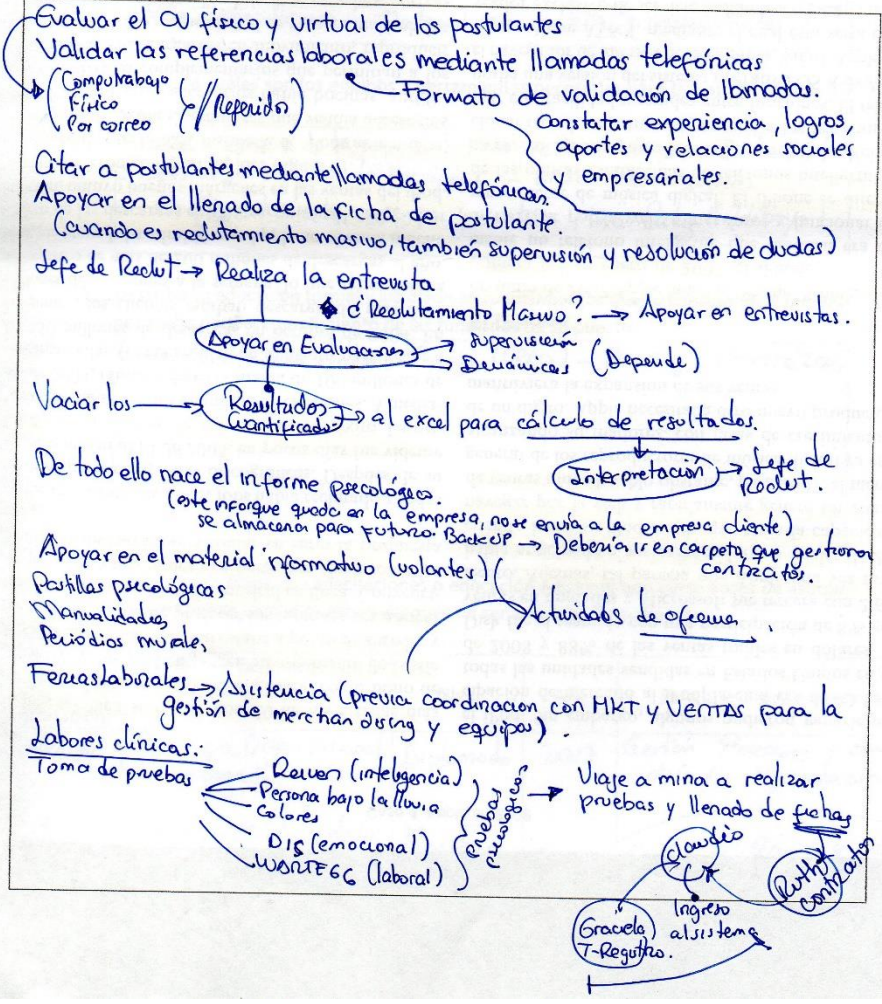 Evaluar el CV físico y virtual de los postulantes
Validar las referencias laborales mediante llamadas telefónicas
Computrabajo
Físico
Por correo
//Referidos
Formato de validación de llamadas.
Constatar experiencia, logros,
aportes y relaciones sociales
empresariales.
Citar a postulantes mediante llamadas telefónicas.
Apoyar en el llenado de la ficha de postulante.
(cuando es reclutamiento masivo, también supervisión y resolución de dudas)
Jefe de Reclut → Realiza la entrevista
¿Reclutamiento Masivo? → Apoyar en entrevistas.
Apoyar en Evaluaciones → Supervisión
→ Dinámicas (Depende)
Vaciar los → Resultados Cuantificados → al excel para cálculo de resultados.
Interpretación → Jefe de Reclut.
De todo ello nace el informe psicológico.
(este inforque queda en la empresa, no se envía a la empresa cliente)
se almacena para futuro. BackUP → Debería ir en carpeta que gestiona
contratos.
Apoyar en el material informativo (volantes)
Pastillas psicológicas
Manualidades
Periódios murales
Actividades de oficina.
Ferias laborales → Asistencia (previa coordinación con MKT y VENTAS para la
gestión de merchandising y equipos).
Labores clínicas:
Toma de pruebas
Raven (inteligencia)
Persona bajo la lluvia
Colores
DIS (emocional)
WARTEGG (laboral)
Pruebas psicológicas
→ Viaje a mina a realizar
pruebas y llenado de fichas
Claudio
Ruth contratos
Ingreso
al sistema
Graciela
T-Registro.